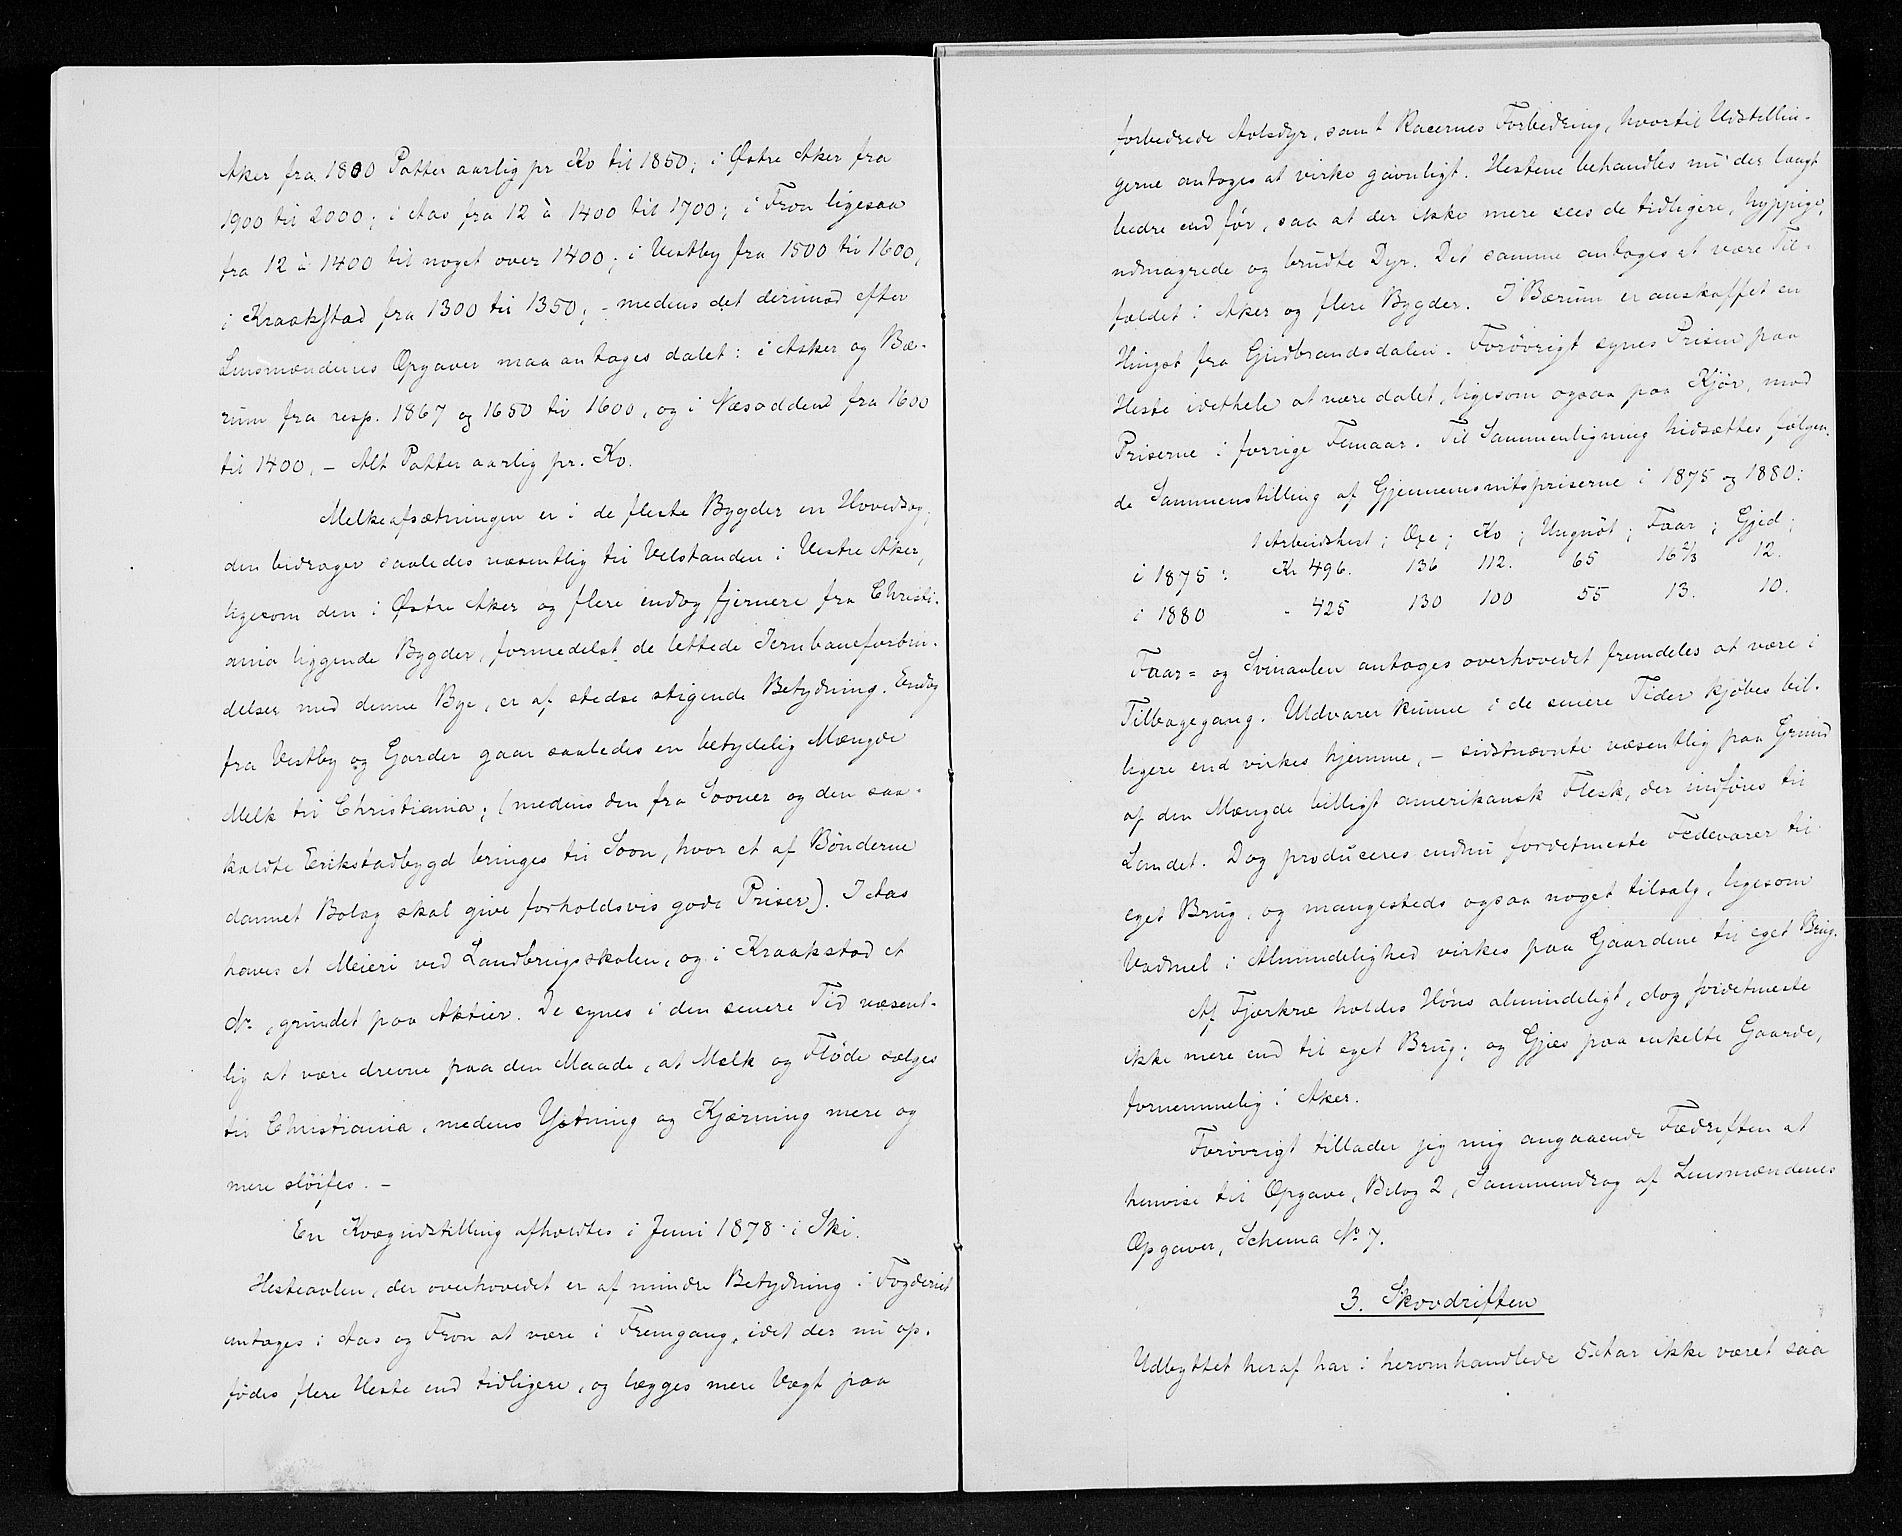 Aker fra 1800 Potter aarlig pr Ko til 1850; i Østre Aker fra
1900 til 2000; i Aas fra 12 à 1400 til 1700; i Fron ligesaa
fra 12 à 1400 til noget over 1400; i Vestby fra 1500 til 1600,
i Kraakstad fra 1300 til 1350; - medens det derimod efter
Lensmændenes Opgaver maa antages dalet: i Asker og Bæ-
rum fra resp. 1867 og 1650 til 1600, og i Næsodden fra 1600
til 1400, - Alt Potter aarlig pr. Ko.
Melkeafsætningen er i de fleste Bygder en Hovedsag;
den bidrager saaledes væsentlig til Velstanden i Vestre Aker,
ligesom den i Østre Aker og flere endog fjernere fra Christi-
ania liggende Bygder, formedelst de lettede Jernbaneforbin-
delser med denne By, er af stedse stigende Betydning. Endog
fra Vestby og Garder gaar saaledes en betydelig Mængde
Melk til Christiania; (medens den fra Sooner og den saa-
kaldte Erikstadbygd bringes til Soon, hvor et af Bønderne
dannet Bolag skal give forholdsvis gode Priser). I Aas
haves et Meieri ved Landbrugsskolen, og i Kraakstad et
No, grundet paa Aktier. De synes i den senere Tid væsent-
lig at være drevne paa den Maade, at Melk og Fløde sælges
til Christiania, medens Ystning og Kjærning mere og
mere sløifes. -
En Kvægudstilling afholdtes i Juni 1878 i Ski.
Hesteavlen, der overhovedet er af mindre Betydning i Fogderiet
antages i Aas og Fron at være i Fremgang, idet der nu op-
fødes flere Heste end tidligere, og lægges mere Vægt paa
forbedrede Avlsdyr, samt Racernes Forbedring, hvortil Udstellin-
gerne antages at virke gavnligt. Hestene behandles nu der langt
bedre end før, saa at der ikke mere sees de tidligere, hyppige,
udmagrede og brudte Dyr. Det samme antages at være Til-
fældet i Aker og flere Bygder. I Bærum er anskaffet en
Hingst fra Gudbrandsdalen. Forøvrigt synes Prisen paa
Heste idethele at være dalet, ligesom ogsaa paa Kjør, mod
Priserne i forrige Femaar. Til Sammenligning hidsættes følgen-
de Sammenstilling af Gjennemsnitspriserne i 1875 og 1880:
1 Arbeidshest; Oxe; Ko; Ungnöt; Faar; Gjed;
i 1875: Kr 496. 136 112. 65 16 2/3 12.
i 1880 - 425 130 100 55 13. 10.
Faar= og Svinavlen antages overhovedet fremdeles at være i
Tilbagegang. Uldvarer kunne i de senere Tider kjøbes bil-
ligere end virkes hjemme, - sidstnævnte væsentlig paa Grund
af den Mængde billigt amerikansk Flesk, der indføres til
Landet. Dog produceres endnu fordetmeste Fedevarer til
eget Brug, og mangesteds ogsaa noget tilsalg, ligesom
Vadmel i Almindelighed virkes paa Gaardene til eget Brug.
Af Fjærkræ holdes Høns almindeligt, dog fordetmeste
ikke mere end til eget Brug; og Gjæs paa enkelte Gaarde,
fornemmelig i Aker.
Forøvrigt tillader jeg mig angaaende Fædriften at
henvise til Opgave, Bilag 2, Sammendrag af Lensmændenes
Opgaver, Schema No 7.
3. Skovdriften
Udbyttet heraf har i heromhandlede 5 Aar ikke været saa